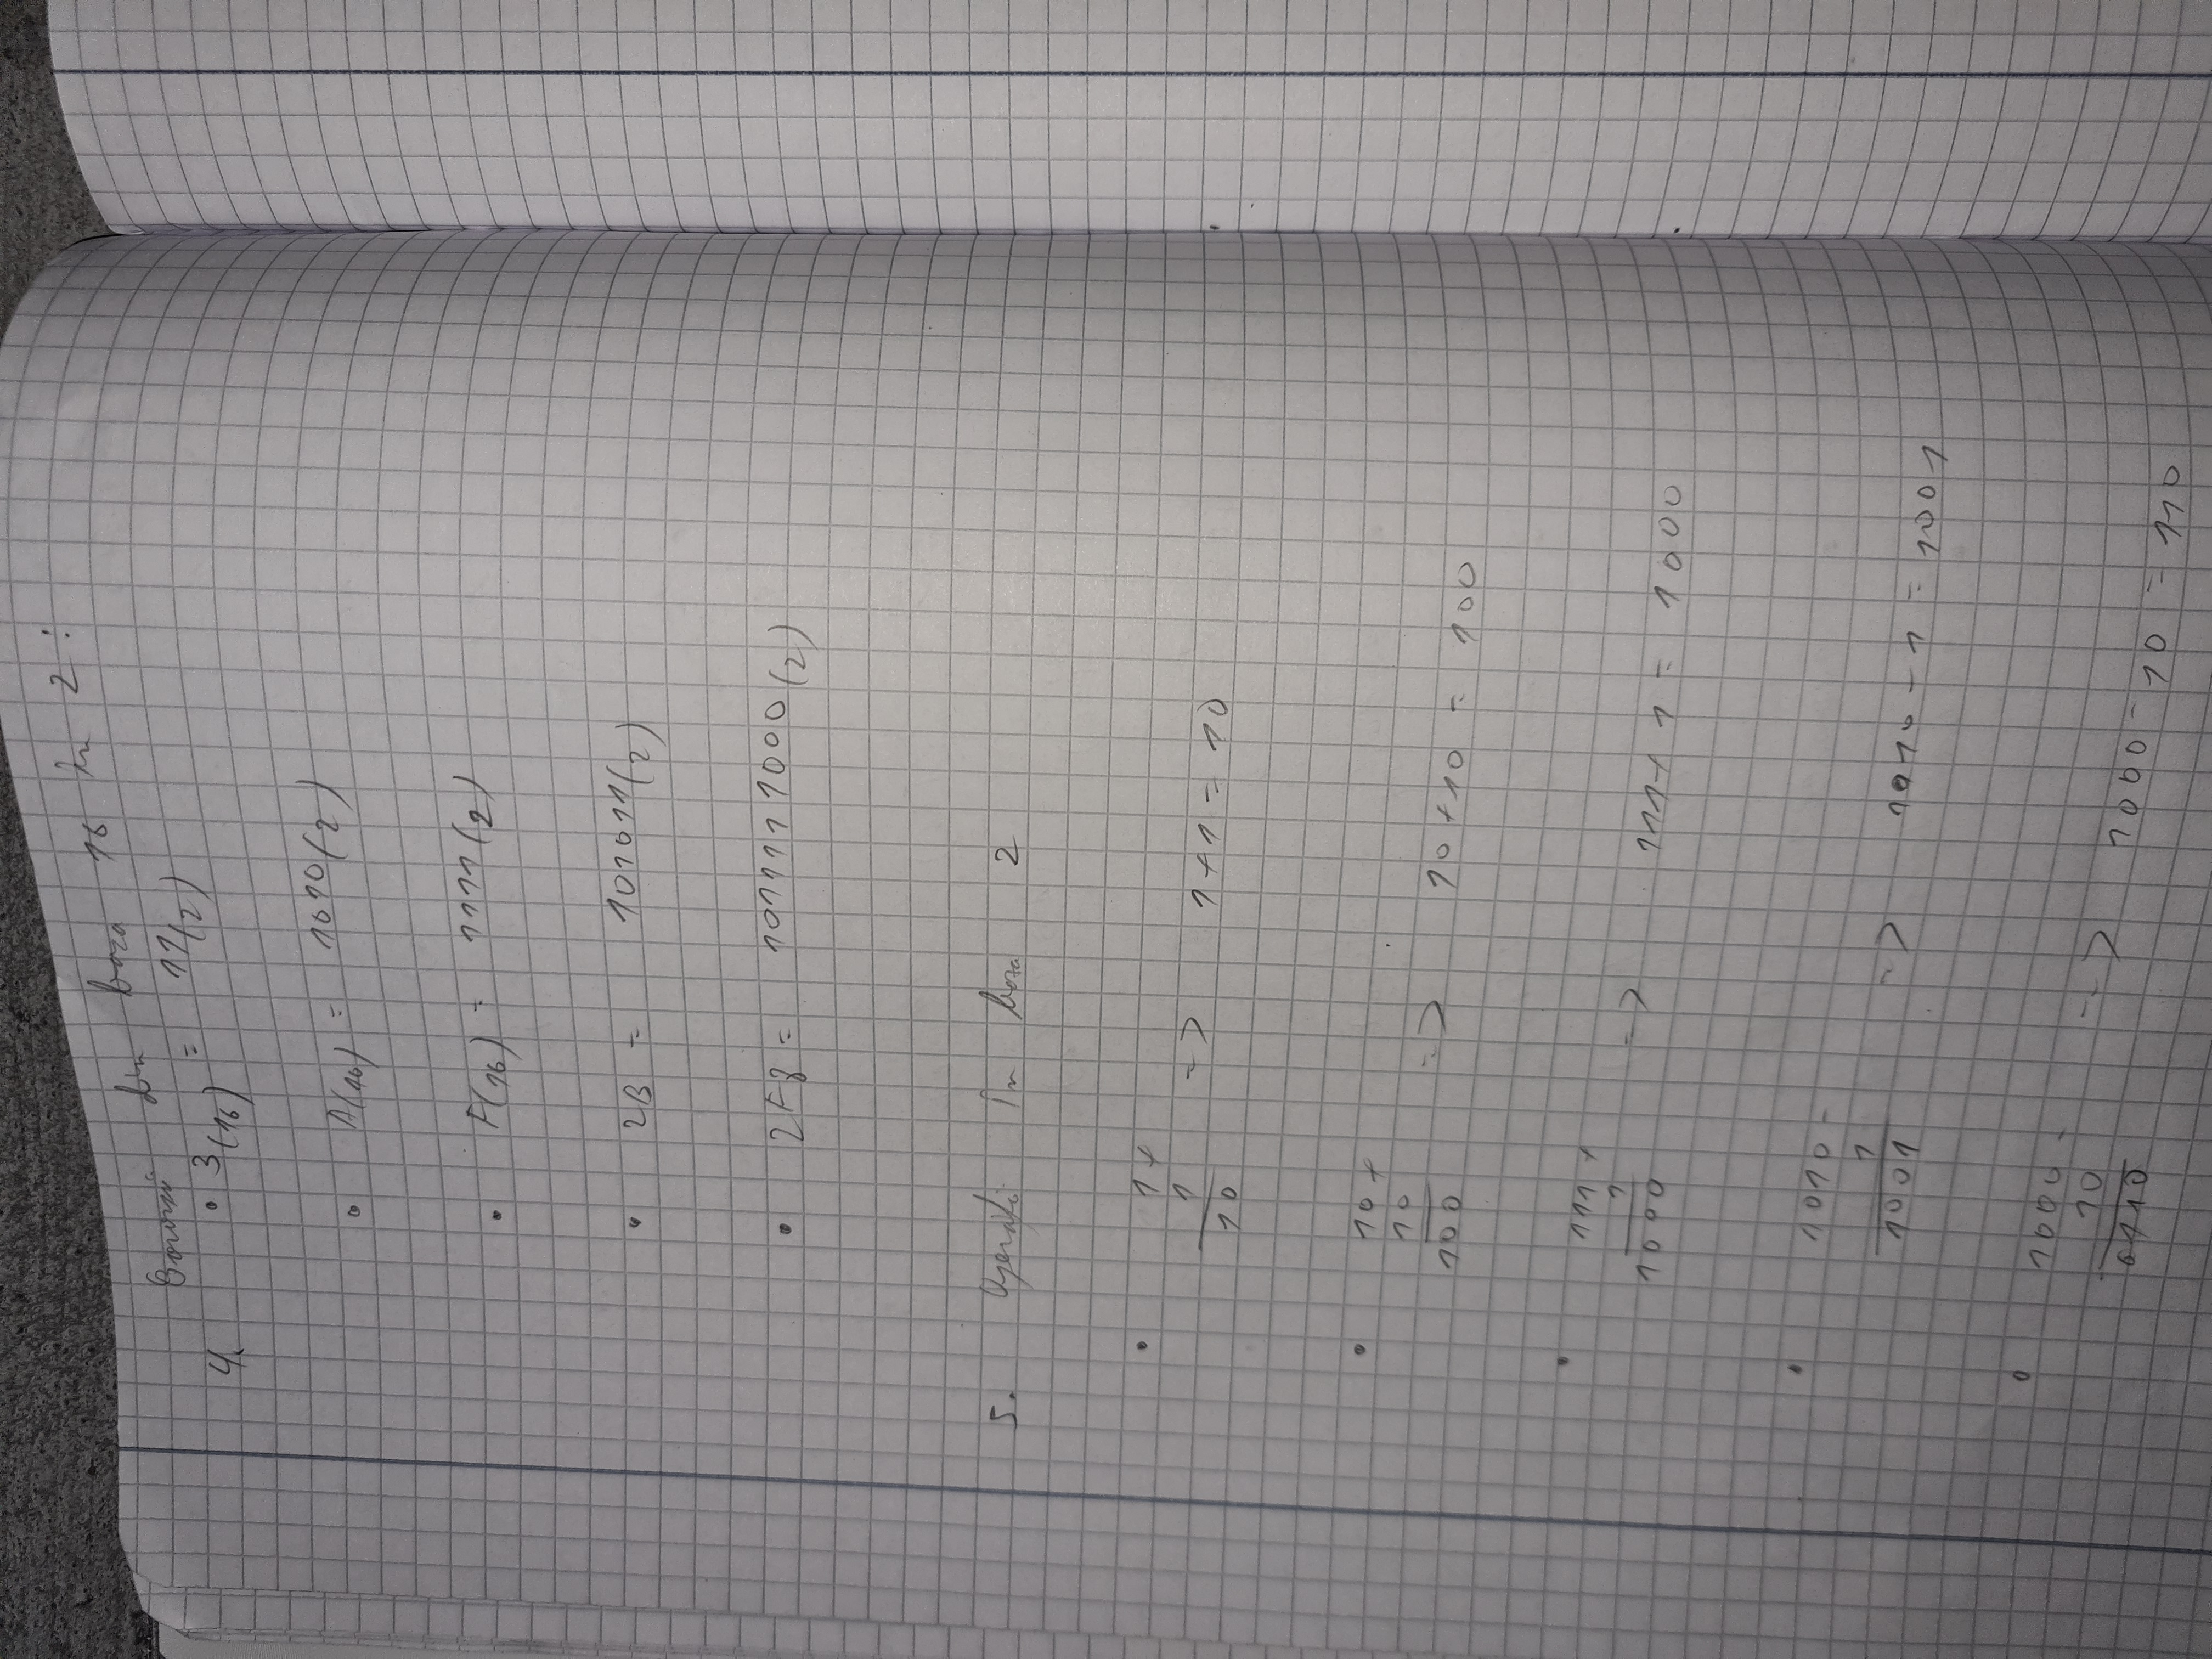 din baza 16 în 2 :
4. • 3(16) = 11(2)
• A(16) = 1010(2)
• F(16) = 1111(2)
• 2B = 101011(2)
• 2F8 = 1011111000(2)
5. Operații în baza 2
• 1+
1 => 1+1 = 10
10
• 10+
10 => 10+10 = 100
100
• 111+
1 => 111+1 = 1000
1000
• 1010-
1 => 1010-1 = 1001
1001
• 1000-
10 => 1000-10 = 110
0110